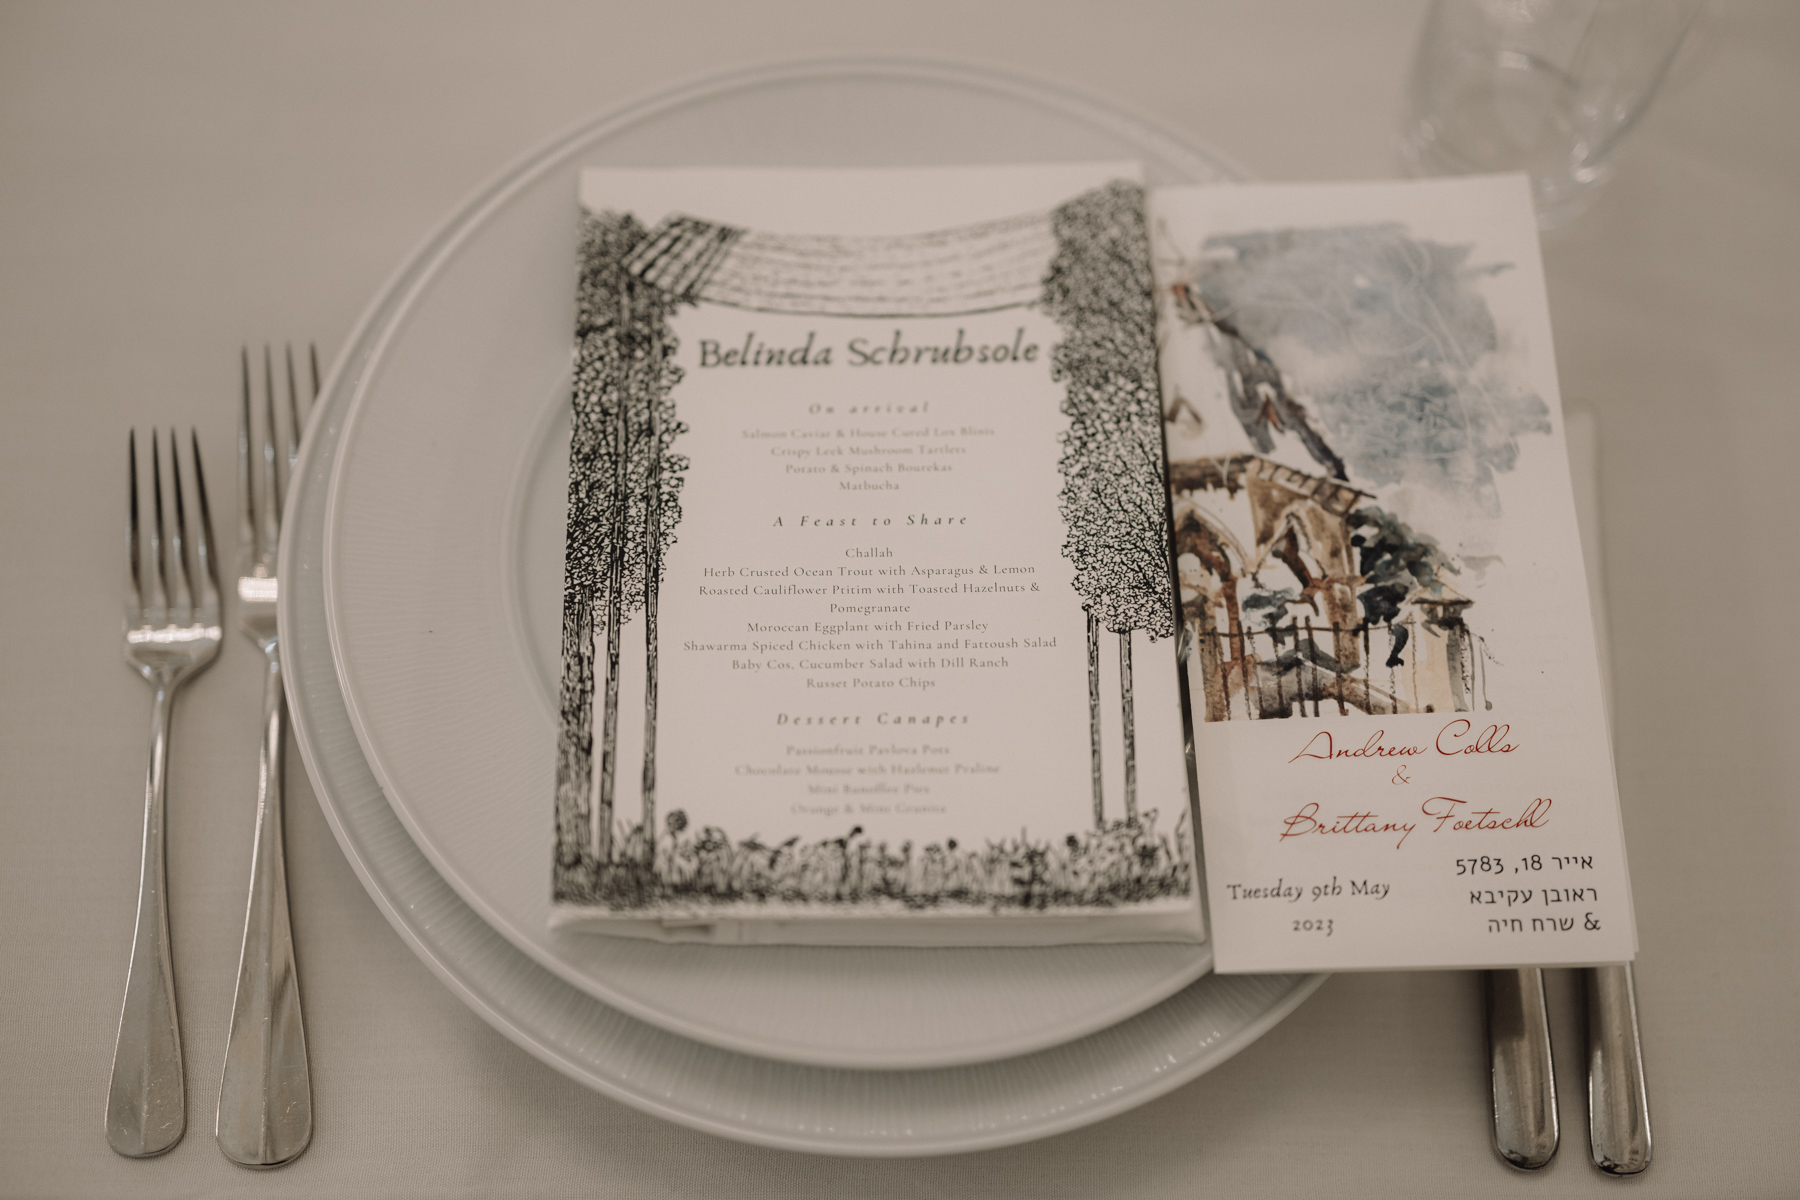 Belinda Schrubsole
On arrival
Salmon Caviar & House Cured Lox Blinis
Crispy Leek Mushroom Tartlets
Potato & Spinach Bourekas
Matbucha
A Feast to Share
Challah
Herb Crusted Ocean Trout with Asparagus & Lemon
Roasted Cauliflower Ptitim with Toasted Hazelnuts &
Pomegranate
Moroccan Eggplant with Fried Parsley
Shawarma Spiced Chicken with Tahina and Fattoush Salad
Baby Cos, Cucumber Salad with Dill Ranch
Russet Potato Chips
Dessert Canapes
Passionfruit Pavlova Pots
Chocolate Mousse with Hazlenut Praline
Mini Banoffee Pies
Orange & Mint Granita
Andrew Colls
&
Brittany Foetschl
Tuesday 9th May
2023
אייר 18, 5783
ראובן עקיבא
& שרח חיה